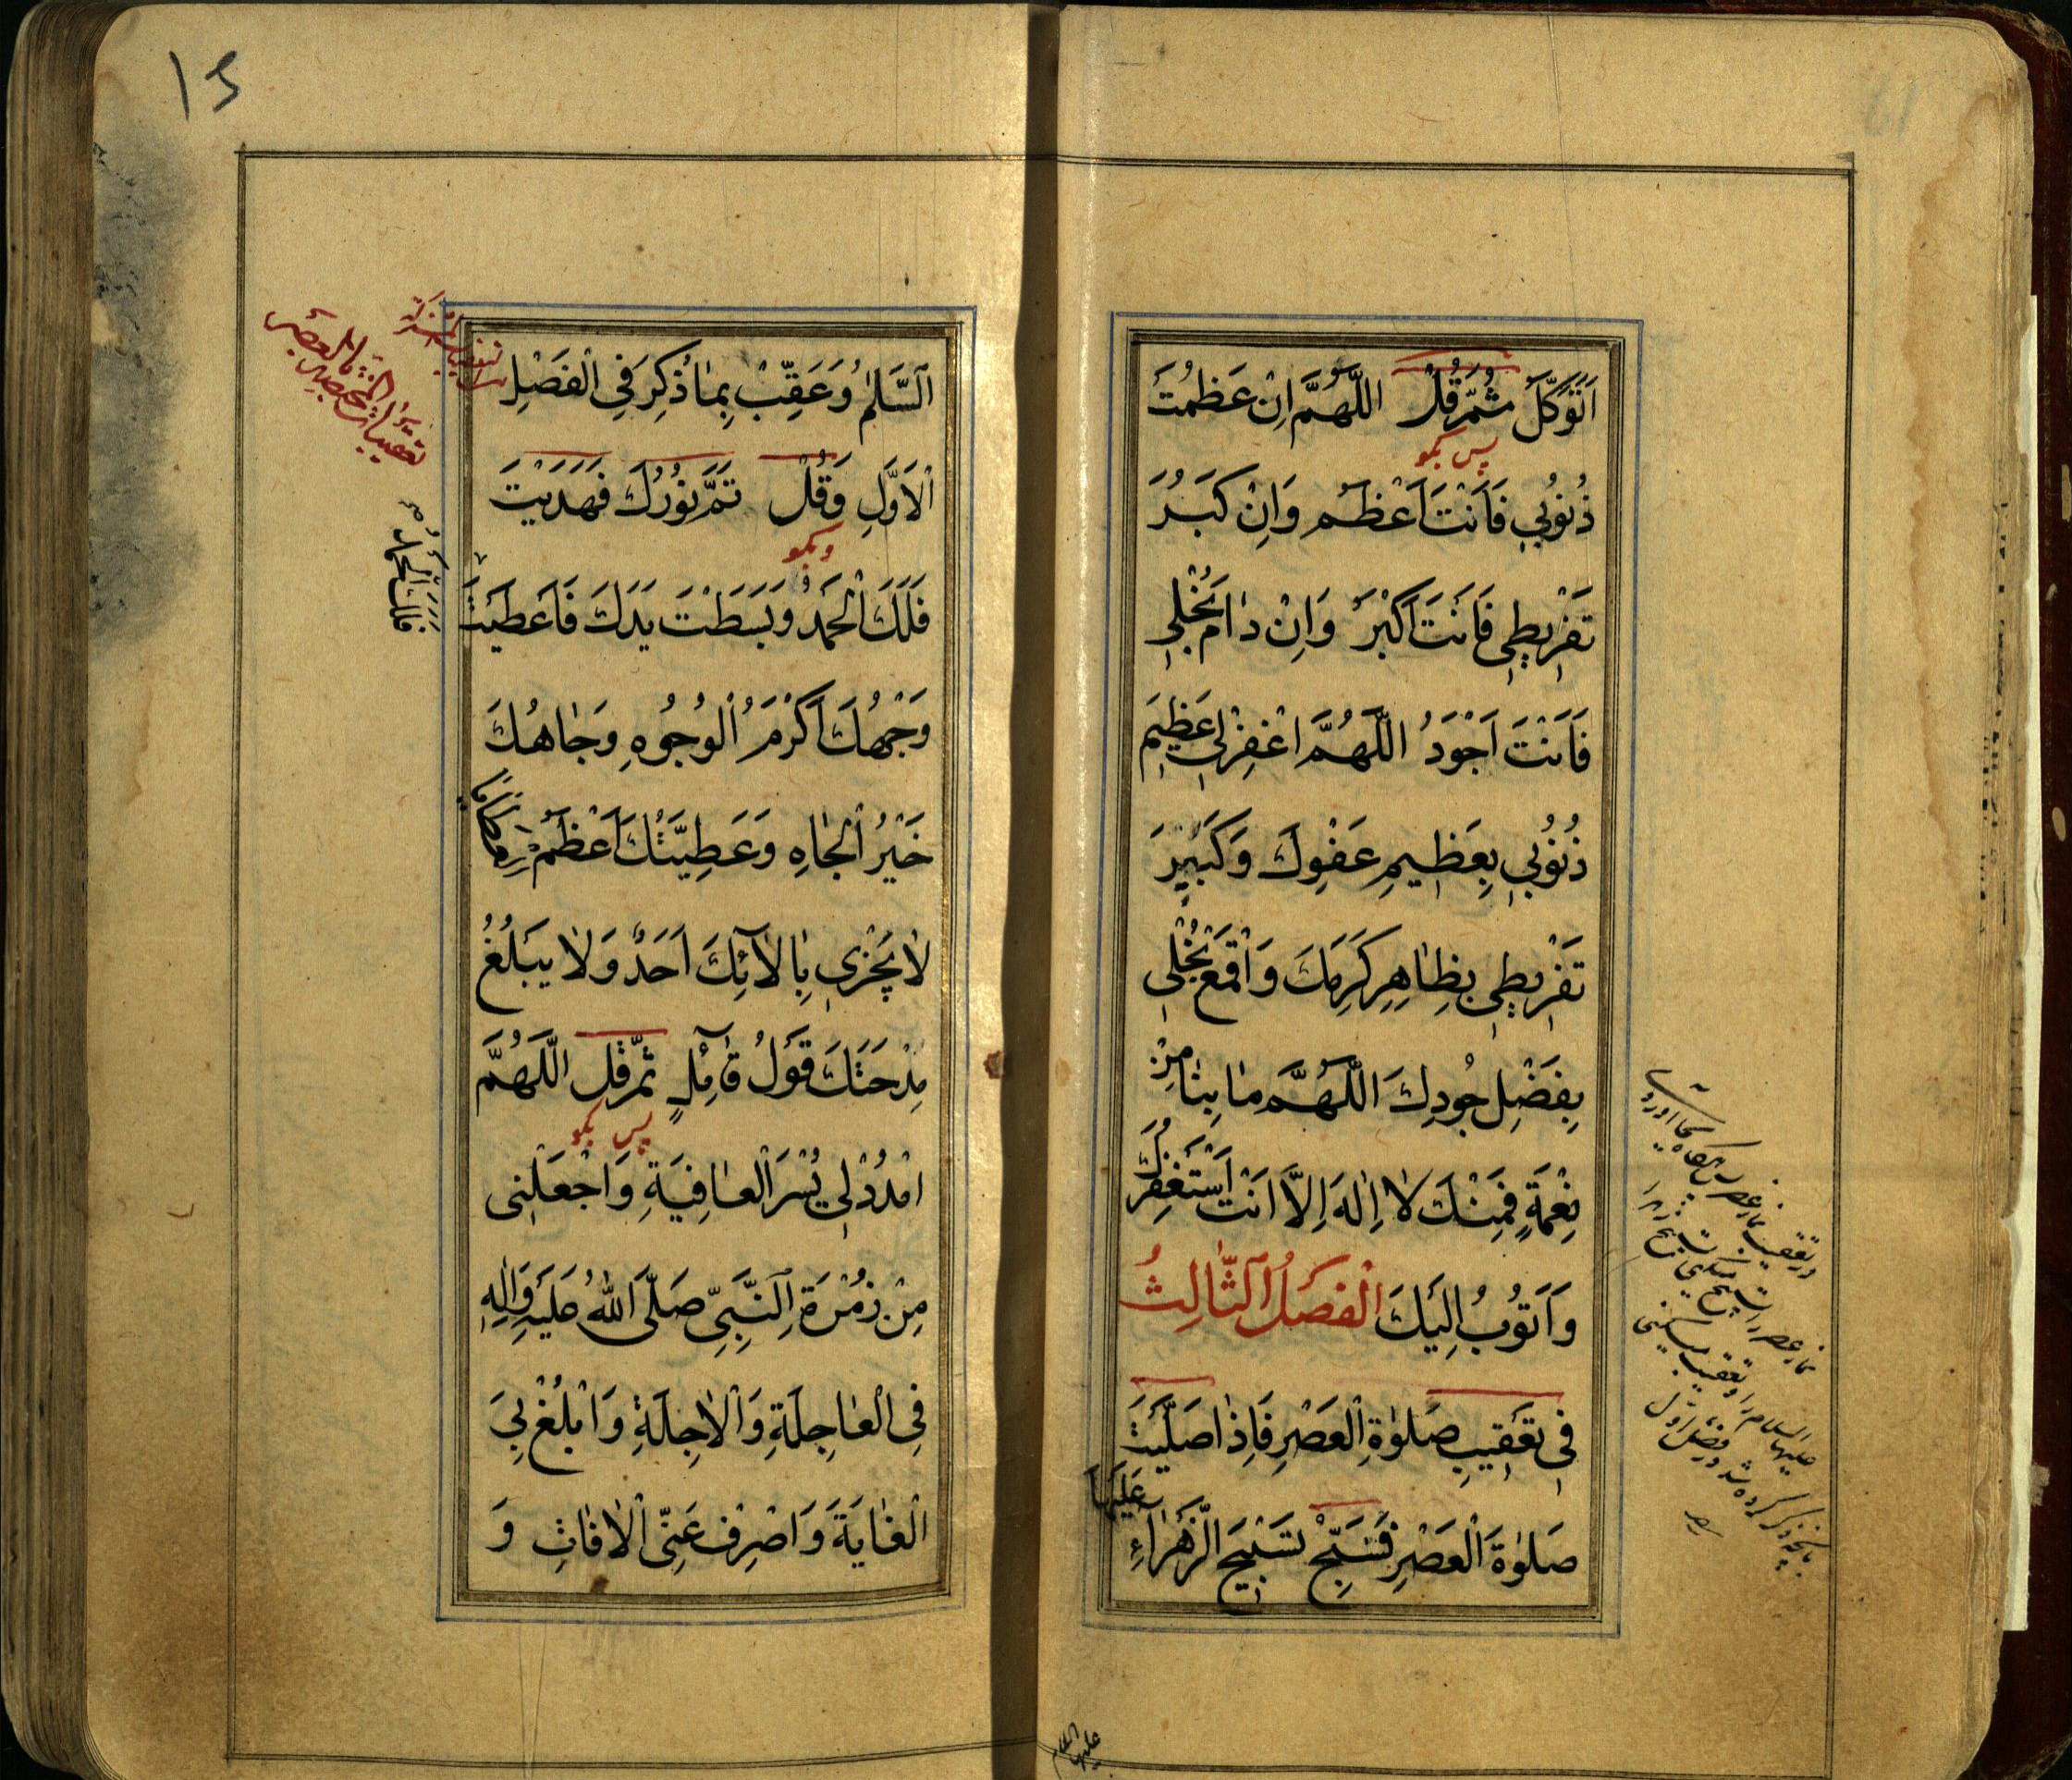 اَتَوَكَّلُ ثُمَّ قُلْ اَللّٰهُمَّ اِنْ عَظُمَتْ
پس بگو
ذُنُوبِي فَاَنْتَ اَعْظَمُ وَاِنْ كَبُرَ
تَفْرِيطِي فَاَنْتَ اَكْبَرُ وَاِنْ دَامَ بُخْلِي
فَاَنْتَ اَجْوَدُ اَللّٰهُمَّ اغْفِرْ لِي عَظِيمَ
ذُنُوبِي بِعَظِيمِ عَفْوِكَ وَكَبِيرَ
تَفْرِيطِي بِظَاهِرِ كَرَمِكَ وَاقْمَعْ بُخْلِي
بِفَضْلِ جُودِكَ اَللّٰهُمَّ مَا بِنَا مِنْ
نِعْمَةٍ فَمِنْكَ لَا اِلٰهَ اِلَّا اَنْتَ اَسْتَغْفِرُكَ
وَاَتُوبُ اِلَيْكَ اَلْفَصْلُ الثَّالِثُ
فِي تَعْقِيبِ صَلٰوةِ الْعَصْرِ فَاِذَا صَلَّيْتَ
صَلٰوةَ الْعَصْرِ فَسَبِّحْ تَسْبِيحَ الزَّهْرَاءِ عَلَيْهَا
در تعقیب نماز عصر
نماز عصر را تسبیح
علیها السلام را و تعقیب
بآنچه ذکر کرده شد در فصل اول
علیها السلام
15
اَلسَّلٰمُ وَعَقِّبْ بِمَا ذُكِرَ فِي الْفَصْلِ
الْاَوَّلِ وَقُلْ تَمَّ نُورُكَ فَهَدَيْتَ
وبگو
فَلَكَ الْحَمْدُ وَبَسَطْتَ يَدَكَ فَاَعْطَيْتَ
فَلَكَ الْحَمْدُ
وَجْهُكَ اَكْرَمُ الْوُجُوهِ وَجَاهُكَ
خَيْرُ الْجَاهِ وَعَطِيَّتُكَ اَعْظَمُ
لَا يَجْزِي بِاٰلَائِكَ اَحَدٌ وَلَا يَبْلُغُ
مِدْحَتَكَ قَوْلُ قَائِلٍ ثُمَّ قُل اَللّٰهُمَّ
پس بگو
امْدُدْ لِي يُسْرَ الْعَافِيَةِ وَاجْعَلْنِي
مِنْ زُمْرَةِ النَّبِيِّ صَلَّى اللّٰهُ عَلَيْهِ وَاٰلِهِ
فِي الْعَاجِلَةِ وَالْاٰجِلَةِ وَابْلُغْ بِيَ
الْغَايَةَ وَاصْرِفْ عَنِّي الْاٰفَاتِ وَ